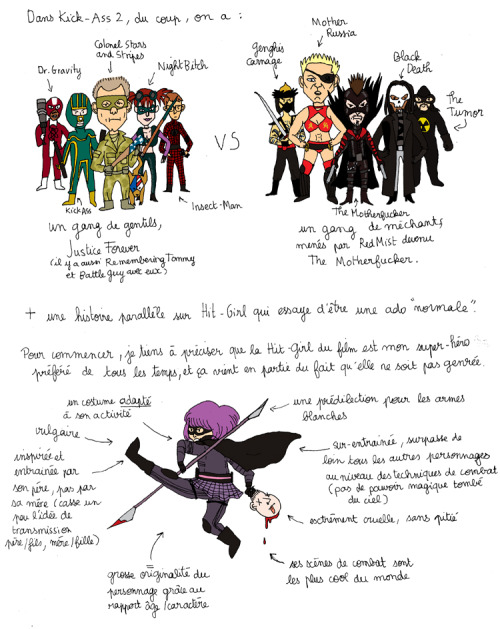 Dans Kick-Ass 2, du coup, on a :
Dr. Gravity
Colonel Stars
and Stripes
Night Bitch
Kick Ass
Insect-Man
un gang de gentils,
Justice Forever
(il y a aussi Remembering Tommy
et Battle Guy avec eux)
VS
Genghis
Carnage
Mother
Russia
Black
Death
The
Tumor
The Motherfucker
un gang de méchants,
menés par Red Mist devenu
The Motherfucker.
+ une histoire parallèle sur Hit-Girl qui essaye d'être une ado "normale".
Pour commencer, je tiens à préciser que la Hit-Girl du film est mon super-héro
préféré de tous les temps, et ça vient en partie du fait qu'elle ne soit pas genrée.
en costume adapté
à son activité
vulgaire
inspirée et
entrainée par
son père, pas par
sa mère (casse un
peu l'idée de
transmission
père/fils, mère/fille)
grosse originalité du
personnage grâce au
rapport âge/caractère
une prédilection pour les armes
blanches
sur-entrainée, surpasse de
loin tous les autres personnages
au niveau des techniques de combat
(pas de pouvoir magique tombé
du ciel)
extrêment cruelle, sans pitié
ses scènes de combat sont
les plus cool du monde